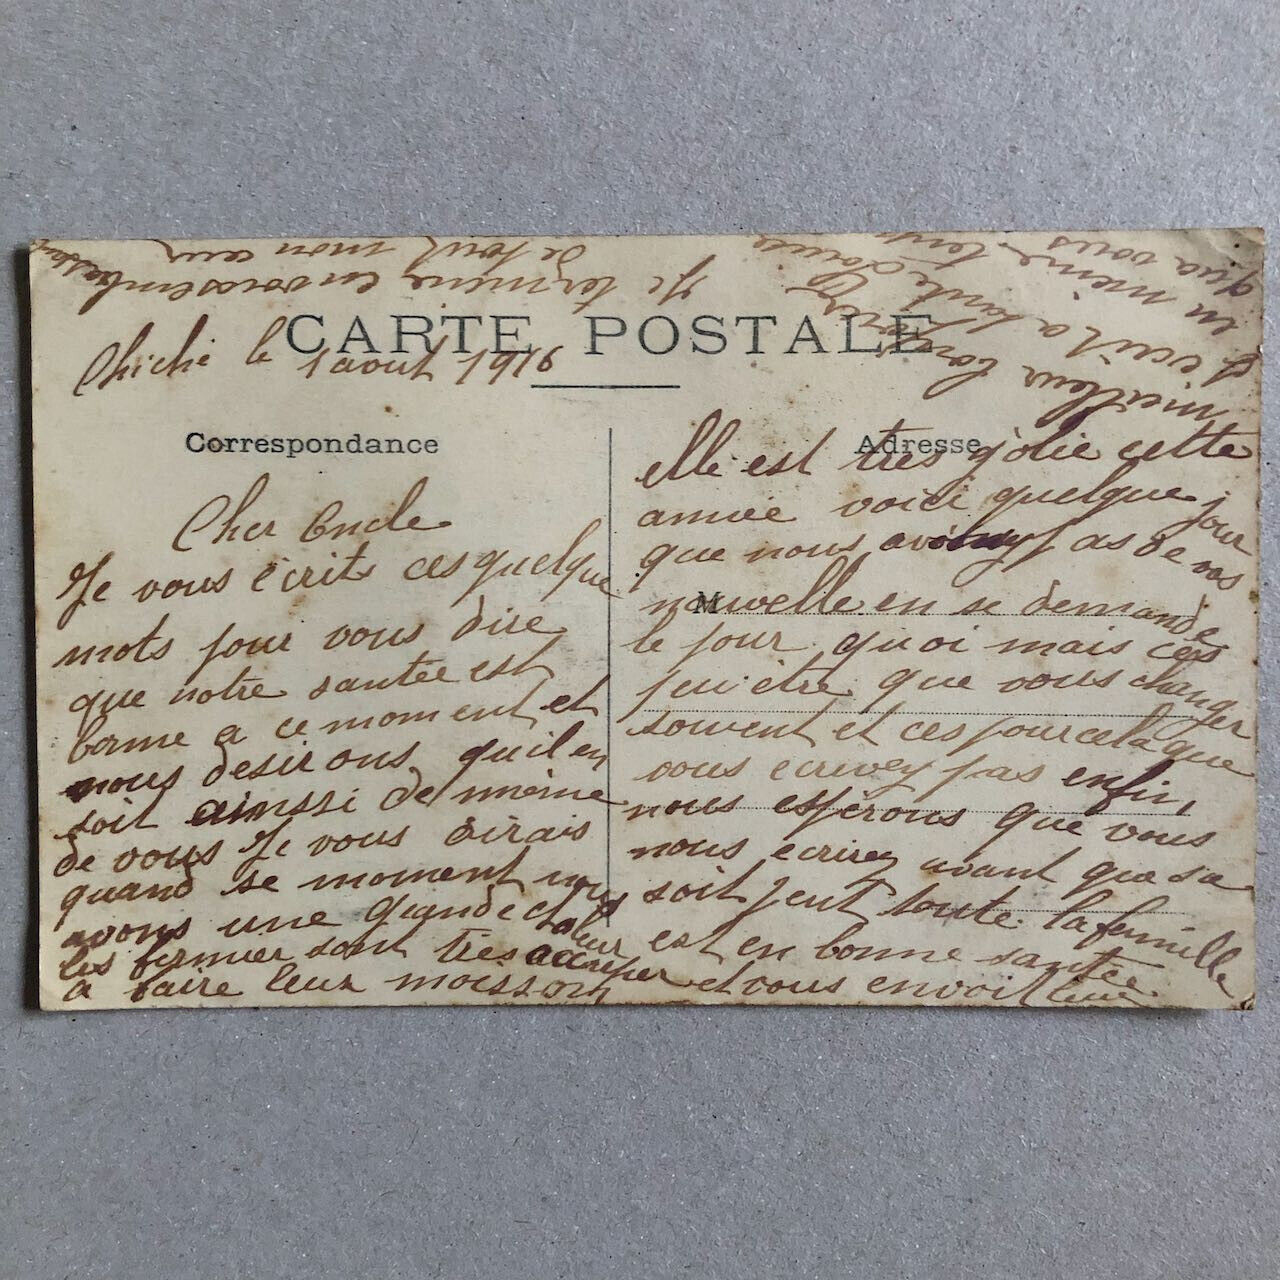 CARTE POSTALE
Chiché le 1 aout 1916
Correspondance
Adresse
Cher Oncle
Je vous écrits ces quelque
mots pour vous dire
que notre santée est
bonne a ce moment et
nous desirons quil en
soit ainssi de même
de vous Je vous dirais
quand se moment nous
avons une grande chaleur
les fermier sont tres accuper
a faire leur moisson
elle est très jolie cette
annee voici quelque jour
que nous avons pas de vos
M
nouvelle en se demande
le pour quoi mais ces
peu etre que vous changer
souvent et ces pour cela que
vous ecrivez pas enfin
nous espérons que vous
nous ecrirez avant que sa
soit peut toute la famille
est en bonne santée
et vous envoit leur
meilleur
ecrit a tante
en même temps
qua vous
Je termine en vous embrassant
de tout mon cœur